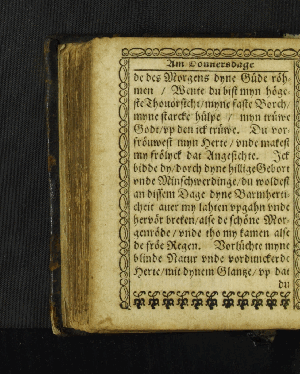 Am Donnersdage
de des Morgens dyne Güde röh-
men / Wente du bist myn höge-
ste Thouörsicht / myne faste Borch /
myne starcke hülpe / myn trüwe
Godt / vp den ick trüwe. Du vor-
fröuwest myn Herte / vnde makest
my frölyck dat Angesichte. Ick
bidde dy / dorch dyne hillige Gebort
vnde Minschwerdinge / du woldest
an dissem Dage dyne Barmherti-
cheit auer my lahten vpgahn vnde
hervör breken / alse de schöne Mor-
genröde / vnde tho my kamen alse
de fröe Regen. Vorlüchte myne
blinde Natur vnde vordunckerde
Herte / mit dynem Glantze / vp dat
du